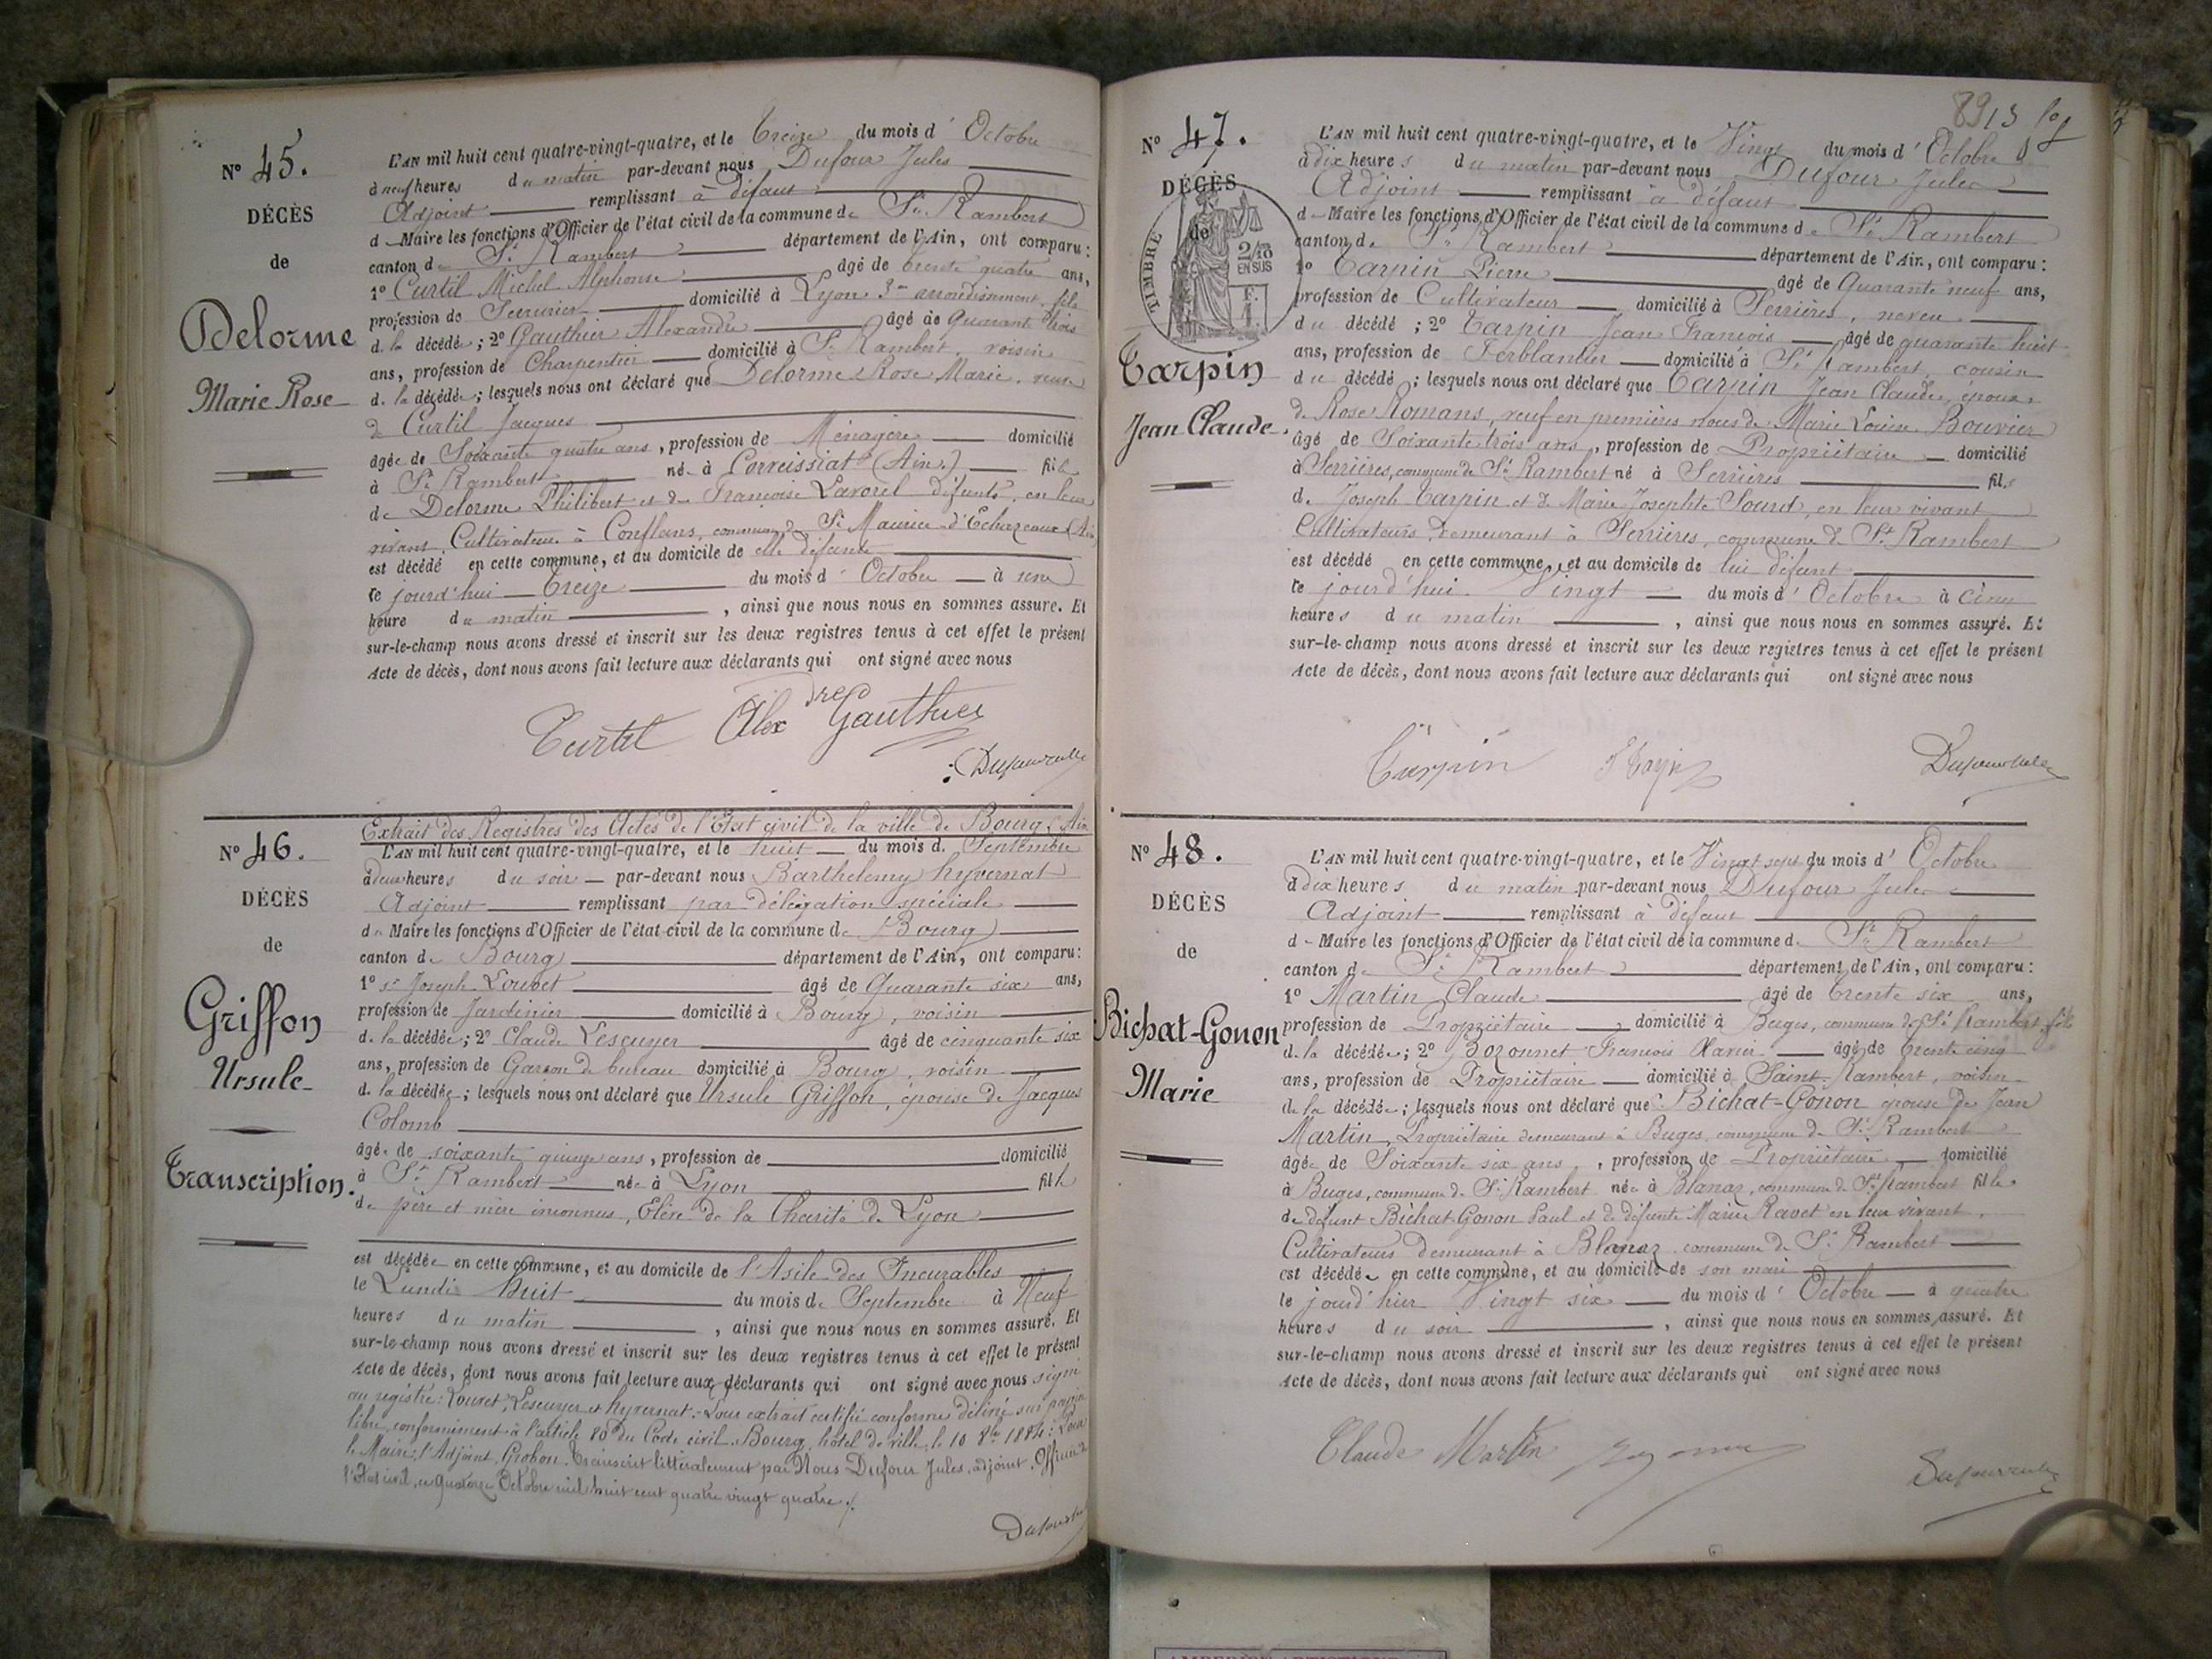 N° 45.
DÉCÈS
de
Delorme
Marie Rose
L'AN mil huit cent quatre-vingt-quatre, et le Treize du mois d' Octobre
à neuf heures du matin par-devant nous Dufour Jules
Adjoint remplissant à défaut
d Maire les fonctions d'Officier de l'état civil de la commune de St Rambert
canton de St Rambert département de l'Ain, ont comparu :
1° Curtil Michel Alphonse âgé de trente quatre ans,
profession de Serrurier domicilié à Lyon 3me arrondissement, fils
d. la décédée ; 2° Gauthier Alexandre âgé de Quarante trois
ans, profession de Charpentier domicilié à St Rambert, voisin
d. la décédée ; lesquels nous ont déclaré que Delorme Rose Marie, veuve
de Curtil Jacques
âgée de Soixante quatre ans, profession de Ménagère domicilié
à St Rambert née à Corveissiat (Ain) fille
de Delorme Philibert et de Françoise Lavorel défunts, en leur
vivant Cultivateurs à Conflans, commune de St Maurice-d'Echazeaux (Ain)
est décédé en cette commune, et au domicile de elle défunte
ce jourd'hui Treize du mois d' Octobre à une
heure du matin , ainsi que nous nous en sommes assuré. Et
sur-le-champ nous avons dressé et inscrit sur les deux registres tenus à cet effet le présent
Acte de décès, dont nous avons fait lecture aux déclarants qui ont signé avec nous
Curtil Alexdre Gauthier
Dufour Jules
N° 46.
DÉCÈS
de
Griffon
Ursule
Transcription.
Extrait des Registres des Actes de l'Etat civil de la ville de Bourg (Ain
L'AN mil huit cent quatre-vingt-quatre, et le huit du mois d. Septembre
à deux heures du soir par-devant nous Barthelemy Hyvernat
Adjoint remplissant par délégation spéciale
du Maire les fonctions d'Officier de l'état civil de la commune de Bourg
canton de Bourg département de l'Ain, ont comparu :
1° sr Joseph Louvet âgé de Quarante six ans,
profession de Jardinier domicilié à Bourg, voisin
d. la décédée ; 2° Claude Lescuyer âgé de cinquante six
ans, profession de Garçon de bureau domicilié à Bourg, voisin
d. la décédée ; lesquels nous ont déclaré que Ursule Griffon, épouse de Jacques
Colomb
âgée de soixante quinze ans, profession de domicilié
à St Rambert née à Lyon fille
de père et mère inconnus, Elève de la Charité de Lyon
est décédée en cette commune, et au domicile de l'Asile des Incurables
le Lundi huit du mois de Septembre à Neuf
heures du matin , ainsi que nous nous en sommes assuré. Et
sur-le-champ nous avons dressé et inscrit sur les deux registres tenus à cet effet le présent
Acte de décès, dont nous avons fait lecture aux déclarants qui ont signé avec nous signé
au registre : Louvet, Lescuyer et Hyvernat. Pour extrait certifié conforme délivré sur papier
libre, conformément à l'article 80 du Code civil. Bourg, hôtel de ville, le 10 8bre 1884 : Pour
le Maire : l'Adjoint, Grobon. Transcrit littéralement par Nous Dufour Jules, adjoint, Officier de
l'Etat civil, ce quatorze Octobre mil huit cent quatre vingt quatre.
Dufour Jules
8913
N° 47.
DÉCÈS
de
TIMBRE
2/10
EN SUS
Tarpin
Jean Claude.
L'AN mil huit cent quatre-vingt-quatre, et le Vingt du mois d' Octobre
à dix heures du matin par-devant nous Dufour Jules
Adjoint remplissant à défaut
d Maire les fonctions d'Officier de l'état civil de la commune de St Rambert
canton de St Rambert département de l'Ain, ont comparu :
1° Tarpin Pierre âgé de Quarante neuf ans,
profession de Cultivateur domicilié à Serrières, neveu
du décédé ; 2° Tarpin Jean François âgé de quarante huit
ans, profession de Ferblantier domicilié à St Rambert, cousin
du décédé ; lesquels nous ont déclaré que Tarpin Jean Claude, époux
de Rose Romans, veuf en premières noces de Marie Louise Bouvier
âgé de Soixante trois ans, profession de Propriétaire domicilié
à Serrières, commune de St Rambert né à Serrières fils
de Joseph Tarpin et de Marie Josephte Sourd, en leur vivant
Cultivateurs demeurant à Serrières, commune de St Rambert
est décédé en cette commune, et au domicile de lui défunt
ce jourd'hui Vingt du mois d' Octobre à cinq
heures du matin , ainsi que nous nous en sommes assuré. Et
sur-le-champ nous avons dressé et inscrit sur les deux registres tenus à cet effet le présent
Acte de décès, dont nous avons fait lecture aux déclarants qui ont signé avec nous
Tarpin J Tarpin Dufour Jules
N° 48.
DÉCÈS
de
Bichat-Gonon
Marie
L'AN mil huit cent quatre-vingt-quatre, et le Vingt sept du mois d' Octobre
à dix heures du matin par-devant nous Dufour Jules
Adjoint remplissant à défaut
d Maire les fonctions d'Officier de l'état civil de la commune d. St Rambert
canton de St Rambert département de l'Ain, ont comparu :
1° Martin Claude âgé de trente six ans,
profession de Propriétaire domicilié à Buges, commune de St Rambert, fils
d. la décédée ; 2° Bozonnet François Xavier âgé de trente cinq
ans, profession de Propriétaire domicilié à Saint-Rambert, voisin
de la décédée ; lesquels nous ont déclaré que Bichat-Gonon épouse de Jean
Martin, Propriétaire demeurant à Buges, commune de St Rambert
âgée de Soixante six ans, profession de Propriétaire domicilié
à Buges, commune de St Rambert née à Blanaz, commune de St Rambert fille
de défunt Bichat-Gonon Paul et de défunte Marie Ravet en leur vivant
Cultivateurs demeurant à Blanaz commune de St Rambert
est décédée en cette commune, et au domicile de son mari
le jourd'hier Vingt six du mois d' Octobre à quatre
heures du soir , ainsi que nous nous en sommes assuré. Et
sur-le-champ nous avons dressé et inscrit sur les deux registres tenus à cet effet le présent
Acte de décès, dont nous avons fait lecture aux déclarants qui ont signé avec nous
Claude Martin
Dufour Jules